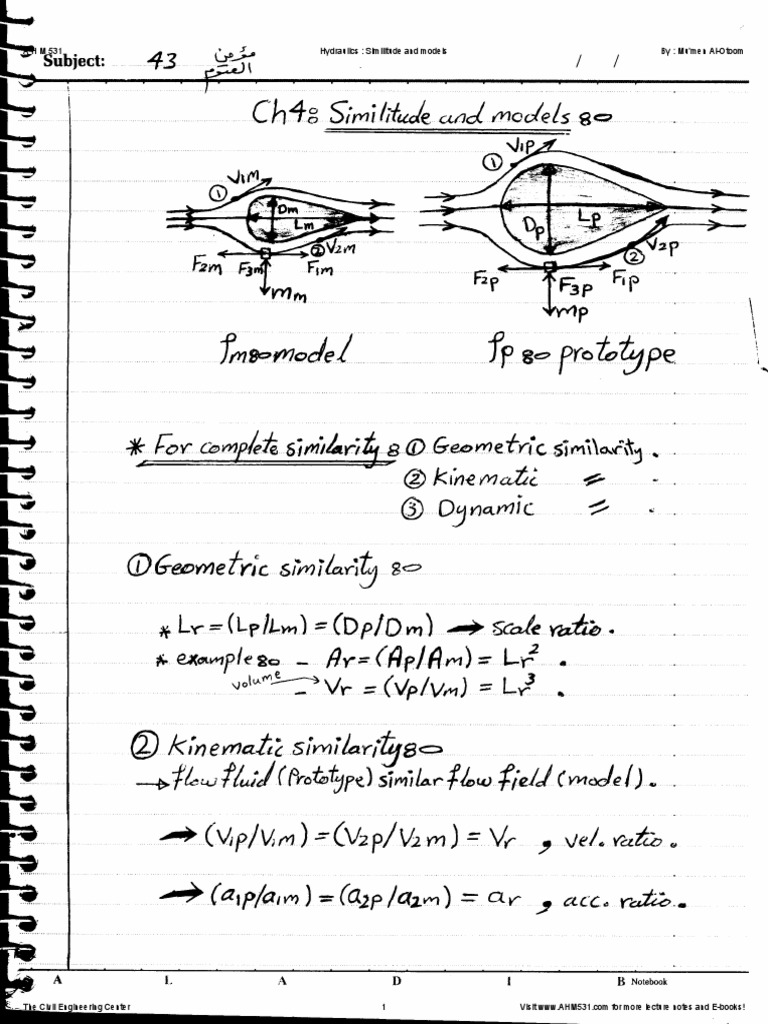 AHM531 Hydraulics : Similitude and models By : Mu'men Al-Otoom
Subject: 43 مؤمن / /
العتوم
Ch4: Similitude and models :-
① V1m Dm Lm ② V2m F2m F3m F1m mm
① V1p Dp Lp V2p ② F2p F3p F1p mp
ρm :- model ρp :- prototype
* For complete similarity : ① Geometric similarity .
② Kinematic = .
③ Dynamic = .
① Geometric similarity :-
* Lr = (Lp/Lm) = (Dp/Dm) → scale ratio .
* example :- - Ar = (Ap/Am) = Lr² .
volume → - Vr = (Vp/Vm) = Lr³ .
② Kinematic similarity :-
→ flow fluid (Prototype) similar flow field (model) .
→ (V1p/V1m) = (V2p/V2m) = Vr , vel. ratio .
→ (a1p/a1m) = (a2p/a2m) = ar , acc. ratio .
A L A D I B Notebook
The Civil Engineering Center 1 Visit www.AHM531.com for more lecture notes and E-books!